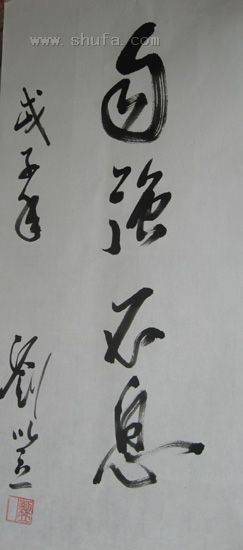 www.shufa.com
自強不息
戊子年
劉